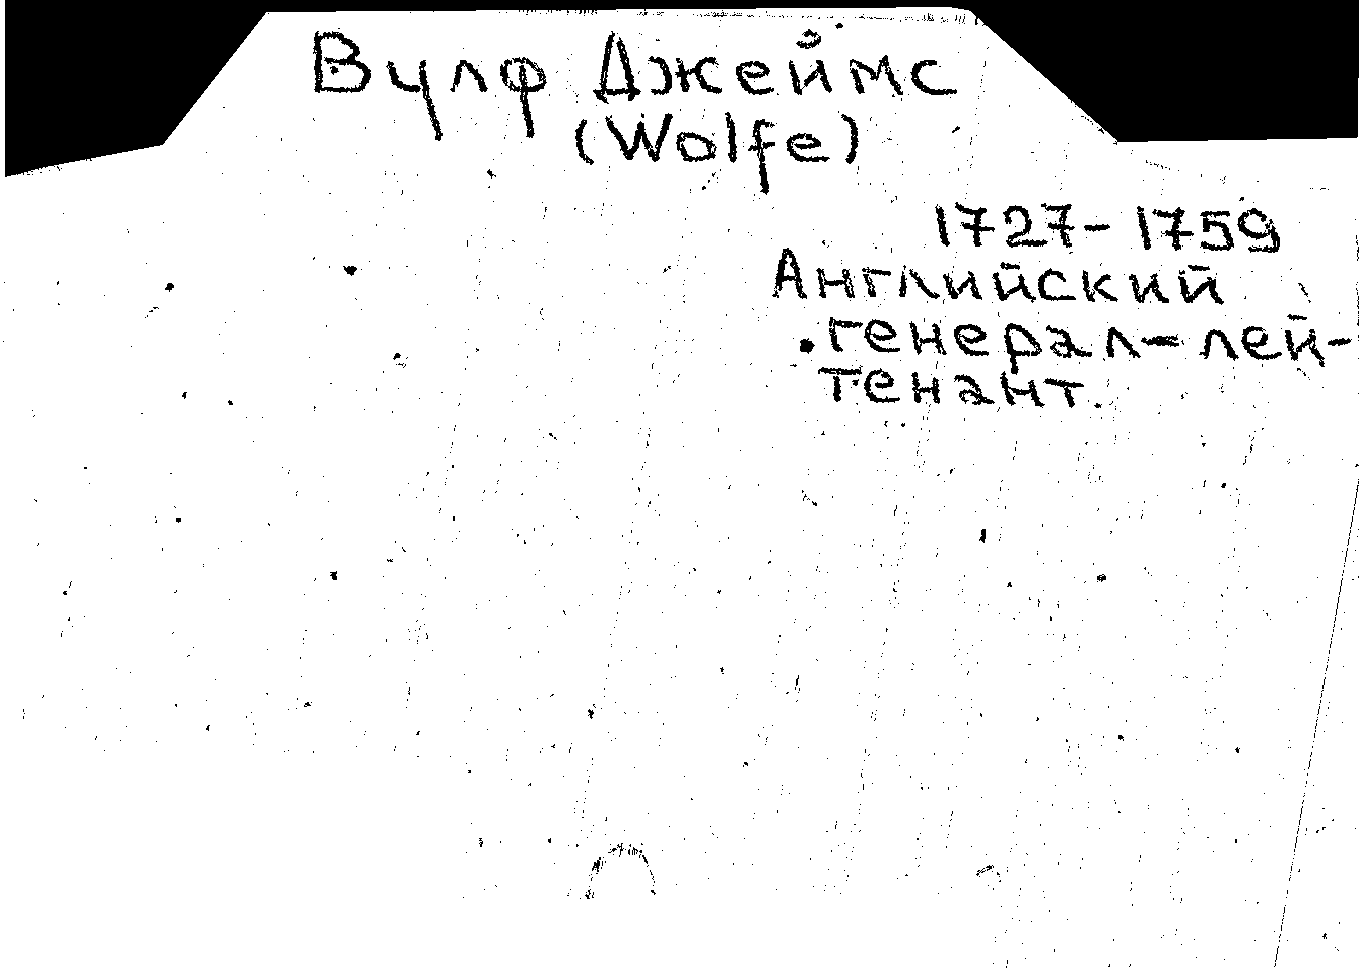 Вулф Джеймс
(Wolfe)
1727-1759
Английский
генерал-лей-
тенант.